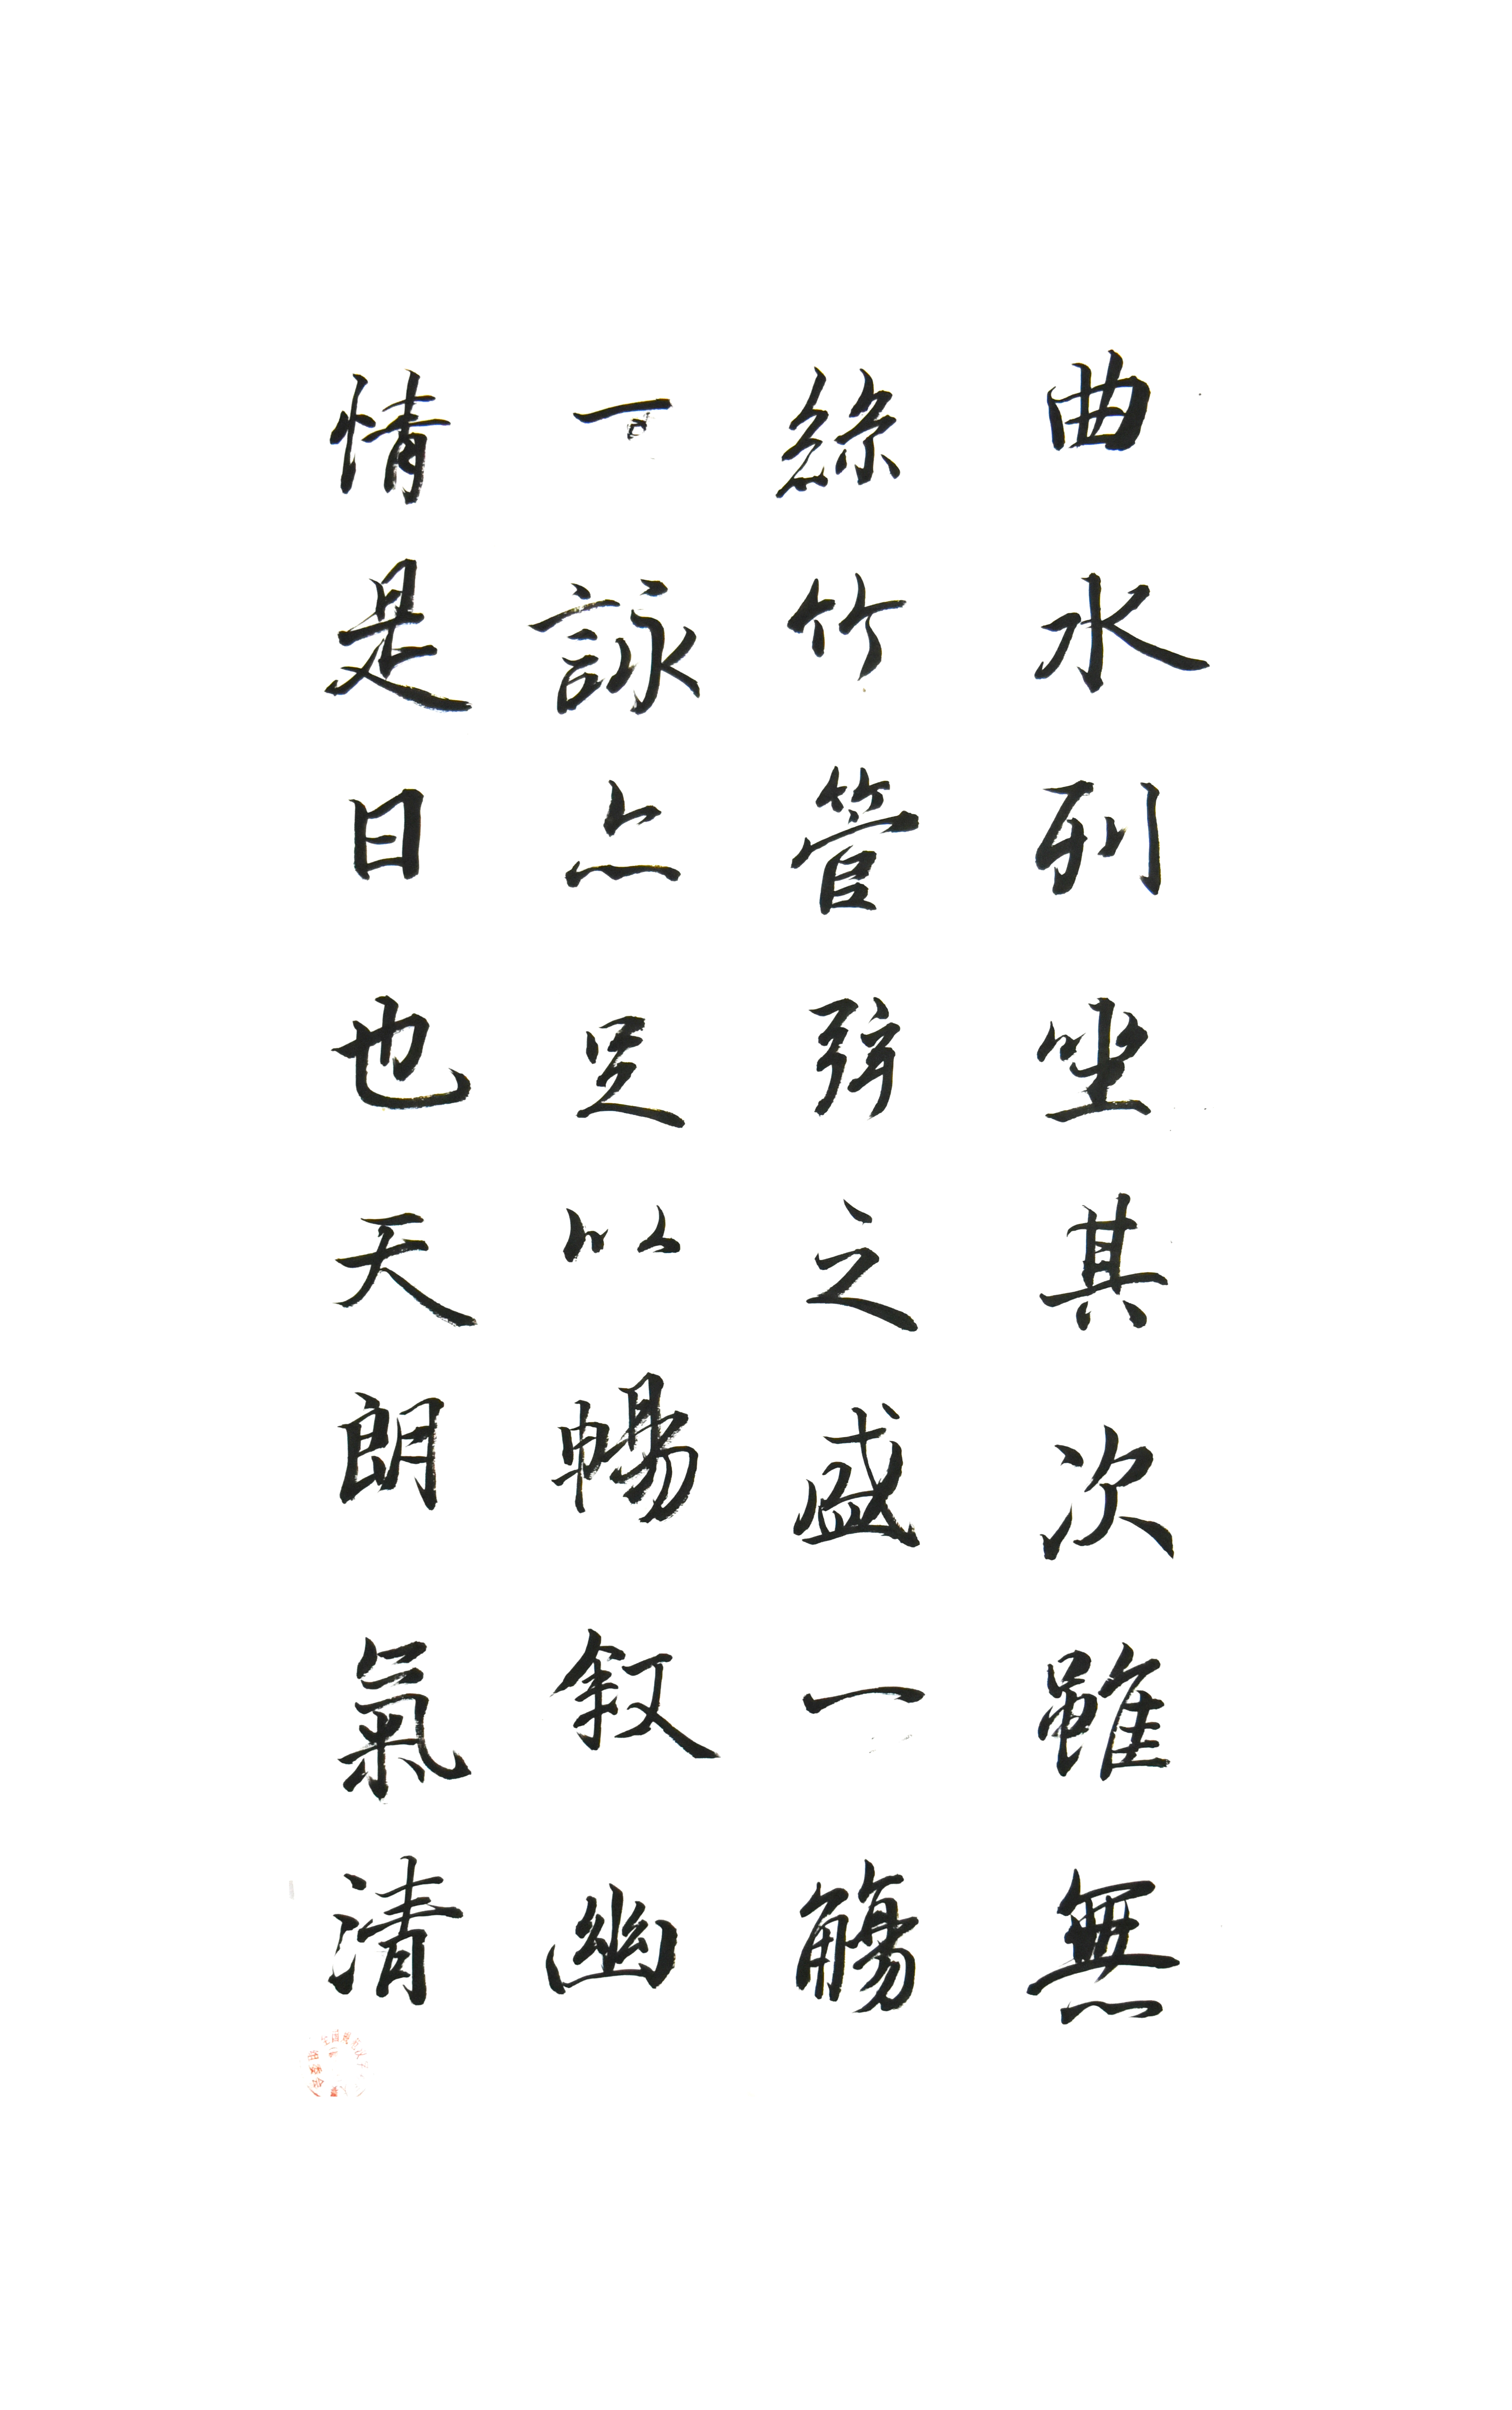 曲水列坐其次雖無
絲竹管弦之盛一觴
一詠亦足以暢敘幽
情是日也天朗氣清